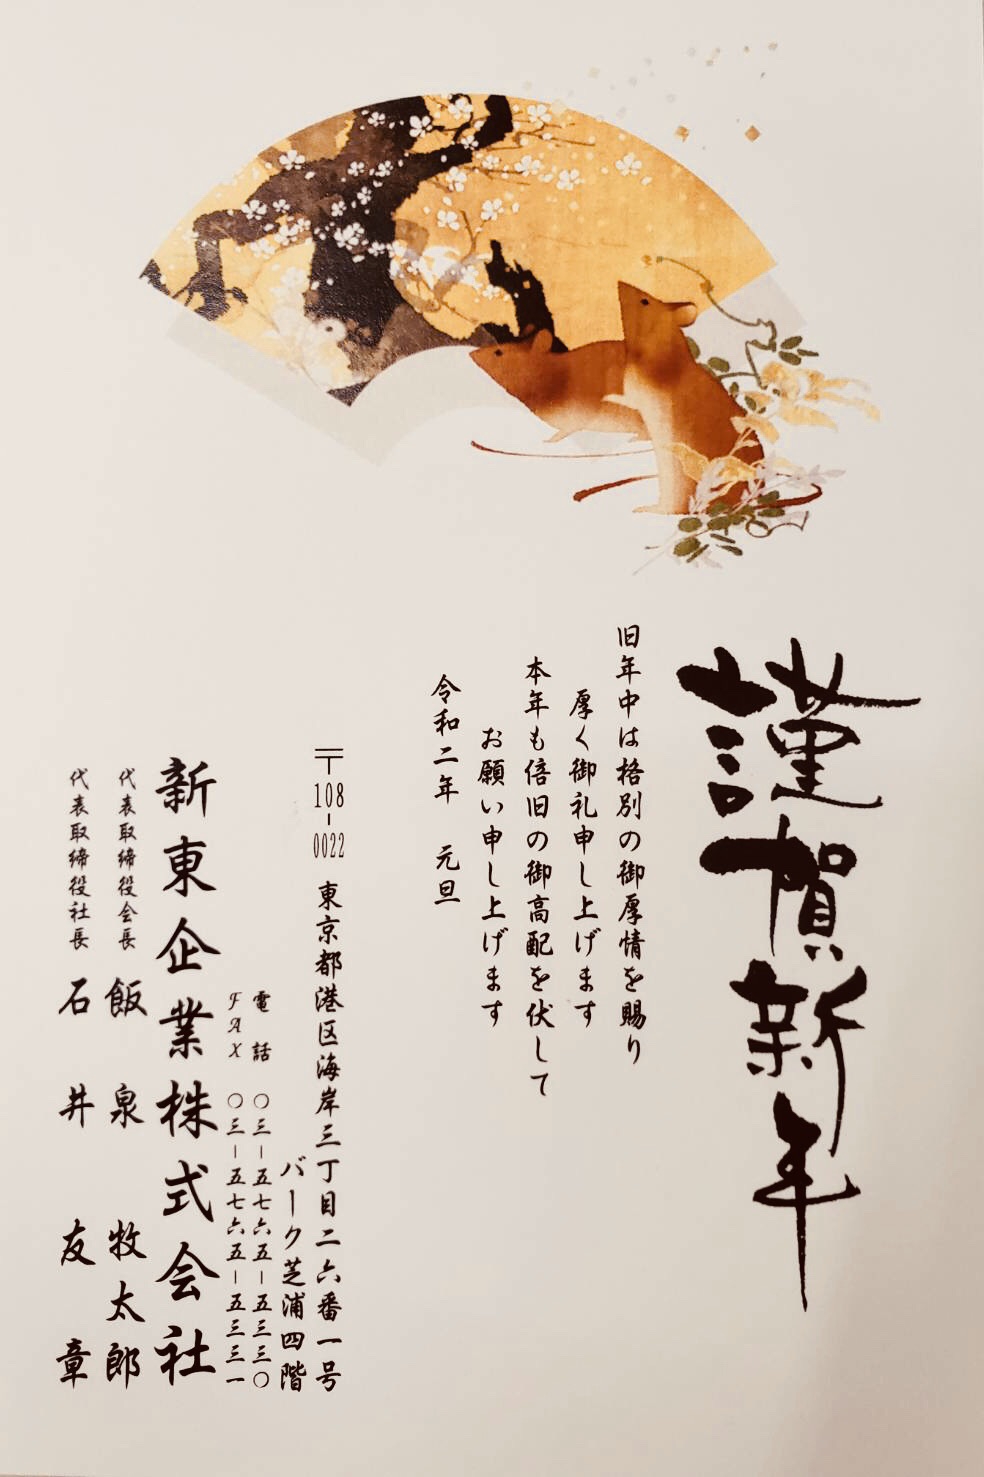 謹賀新年
旧年中は格別の御厚情を賜り
厚く御礼申し上げます
本年も倍旧の御高配を伏して
お願い申し上げます
令和二年　元旦
〒108-0022　東京都港区海岸三丁目二六番一号
バーク芝浦四階
電話　〇三-五七六五-五三三〇
FAX　〇三-五七六五-五三三一
新東企業株式会社
代表取締役会長　飯泉　牧太郎
代表取締役社長　石井　友章